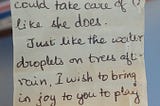 could take care of
like she does.
Just like the water
droplets on trees aft-
rain, I wish to bring
in joy to you to play